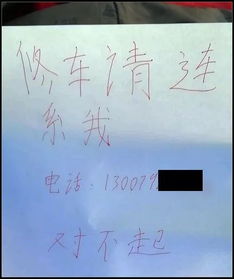 修车请连
系我
电话:130079
对不起